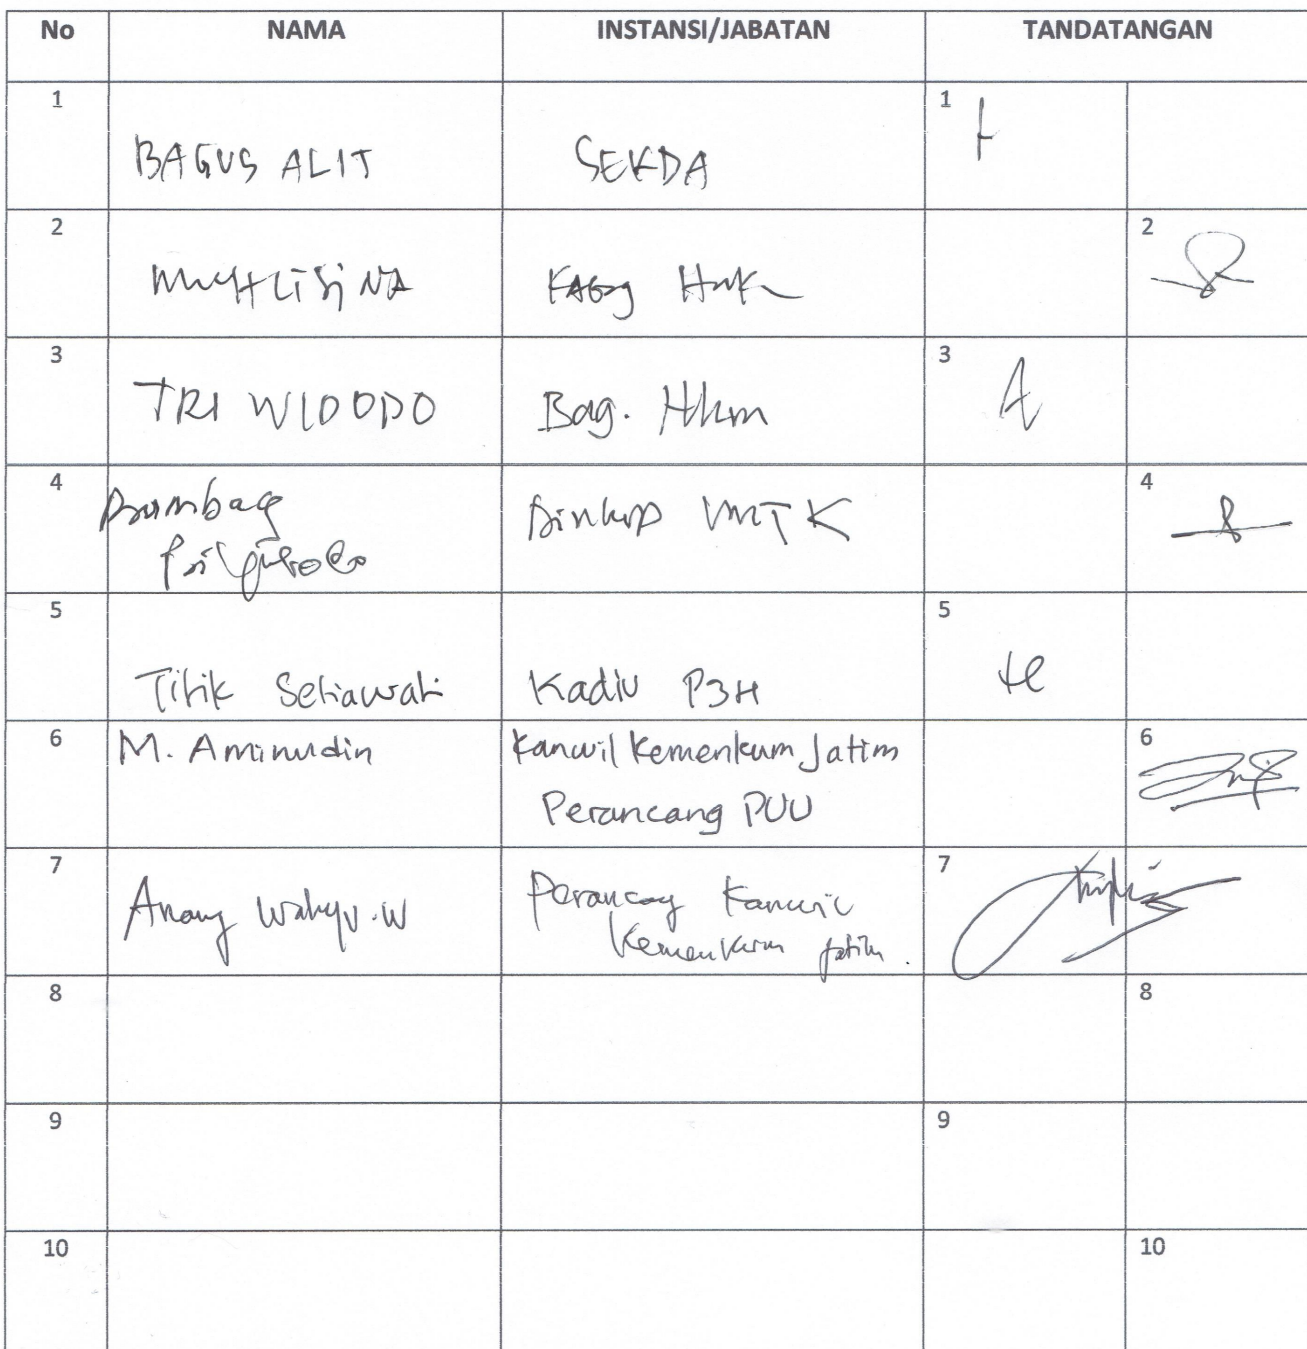 No NAMA INSTANSI/JABATAN TANDATANGAN
1 BAGUS ALIT SEKDA 1
2 MUKHLISINA 2
3 TRI WIDODO Bag. Hkm 3
4 Bambang Dinkop UMTK 4
5 Titik Setiawati Kadiv P3H 5
6 M. Aminudin Kanwil Kemenkum Jatim 6
Perancang PUU
7 Anang Wahyu.W Perancang Kanwil 7
Kemenkum Jatim.
8 8
9 9
10 10